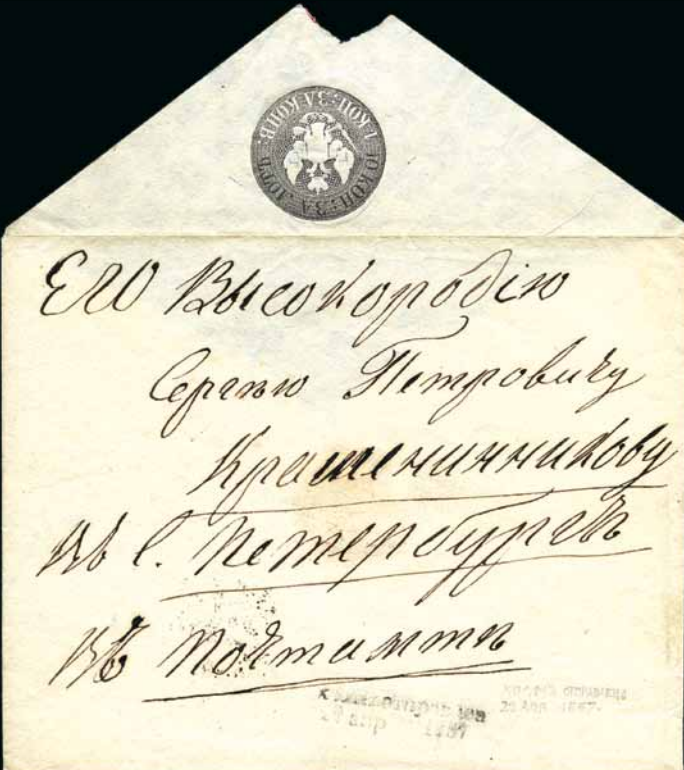 10 КОП: ЗА ЛОТЪ
1 КОП: ЗА КОНВ:
Его Высокородію
Сергѣю Петровичу
Крашенинникову
въ С. Петербургѣ
въ Почтамтѣ
апр 1857
1857